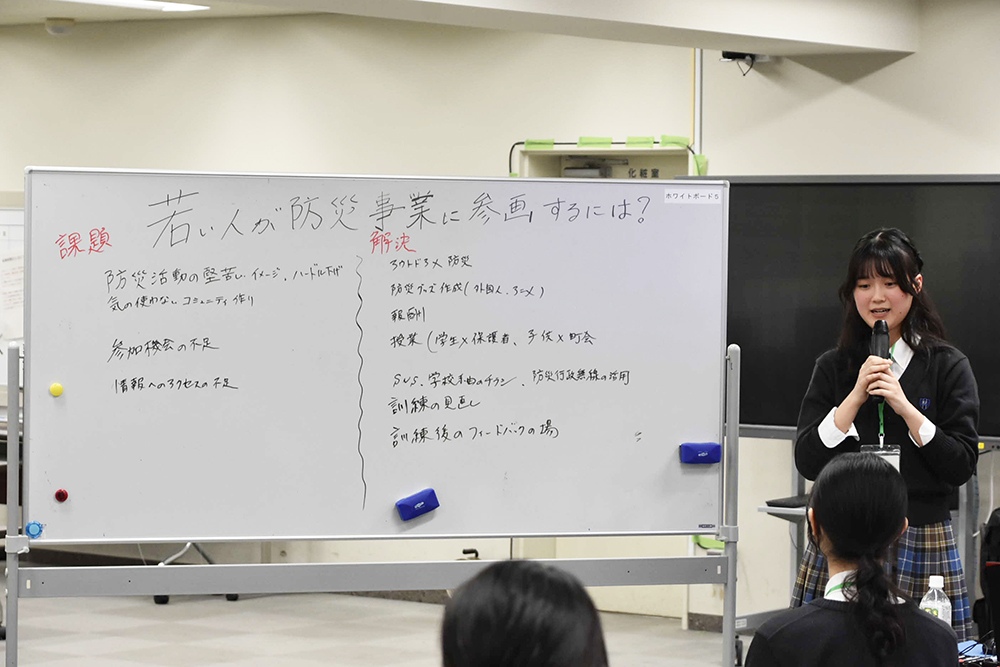 化粧室
ホワイトボード5
若い人が防災事業に参画するには?
課題
防災活動の堅苦しいイメージ、ハードル下げ
気の使わないコミュニティ作り
参加機会の不足
情報へのアクセスの不足
解決
アウトドア×防災
防災グッズ作成(外国人、アニメ)
報酬
授業(学生×保護者、子供×町会
SNS、学校経由のチラシ、防災行政無線の活用
訓練の見直し
訓練後のフィードバックの場